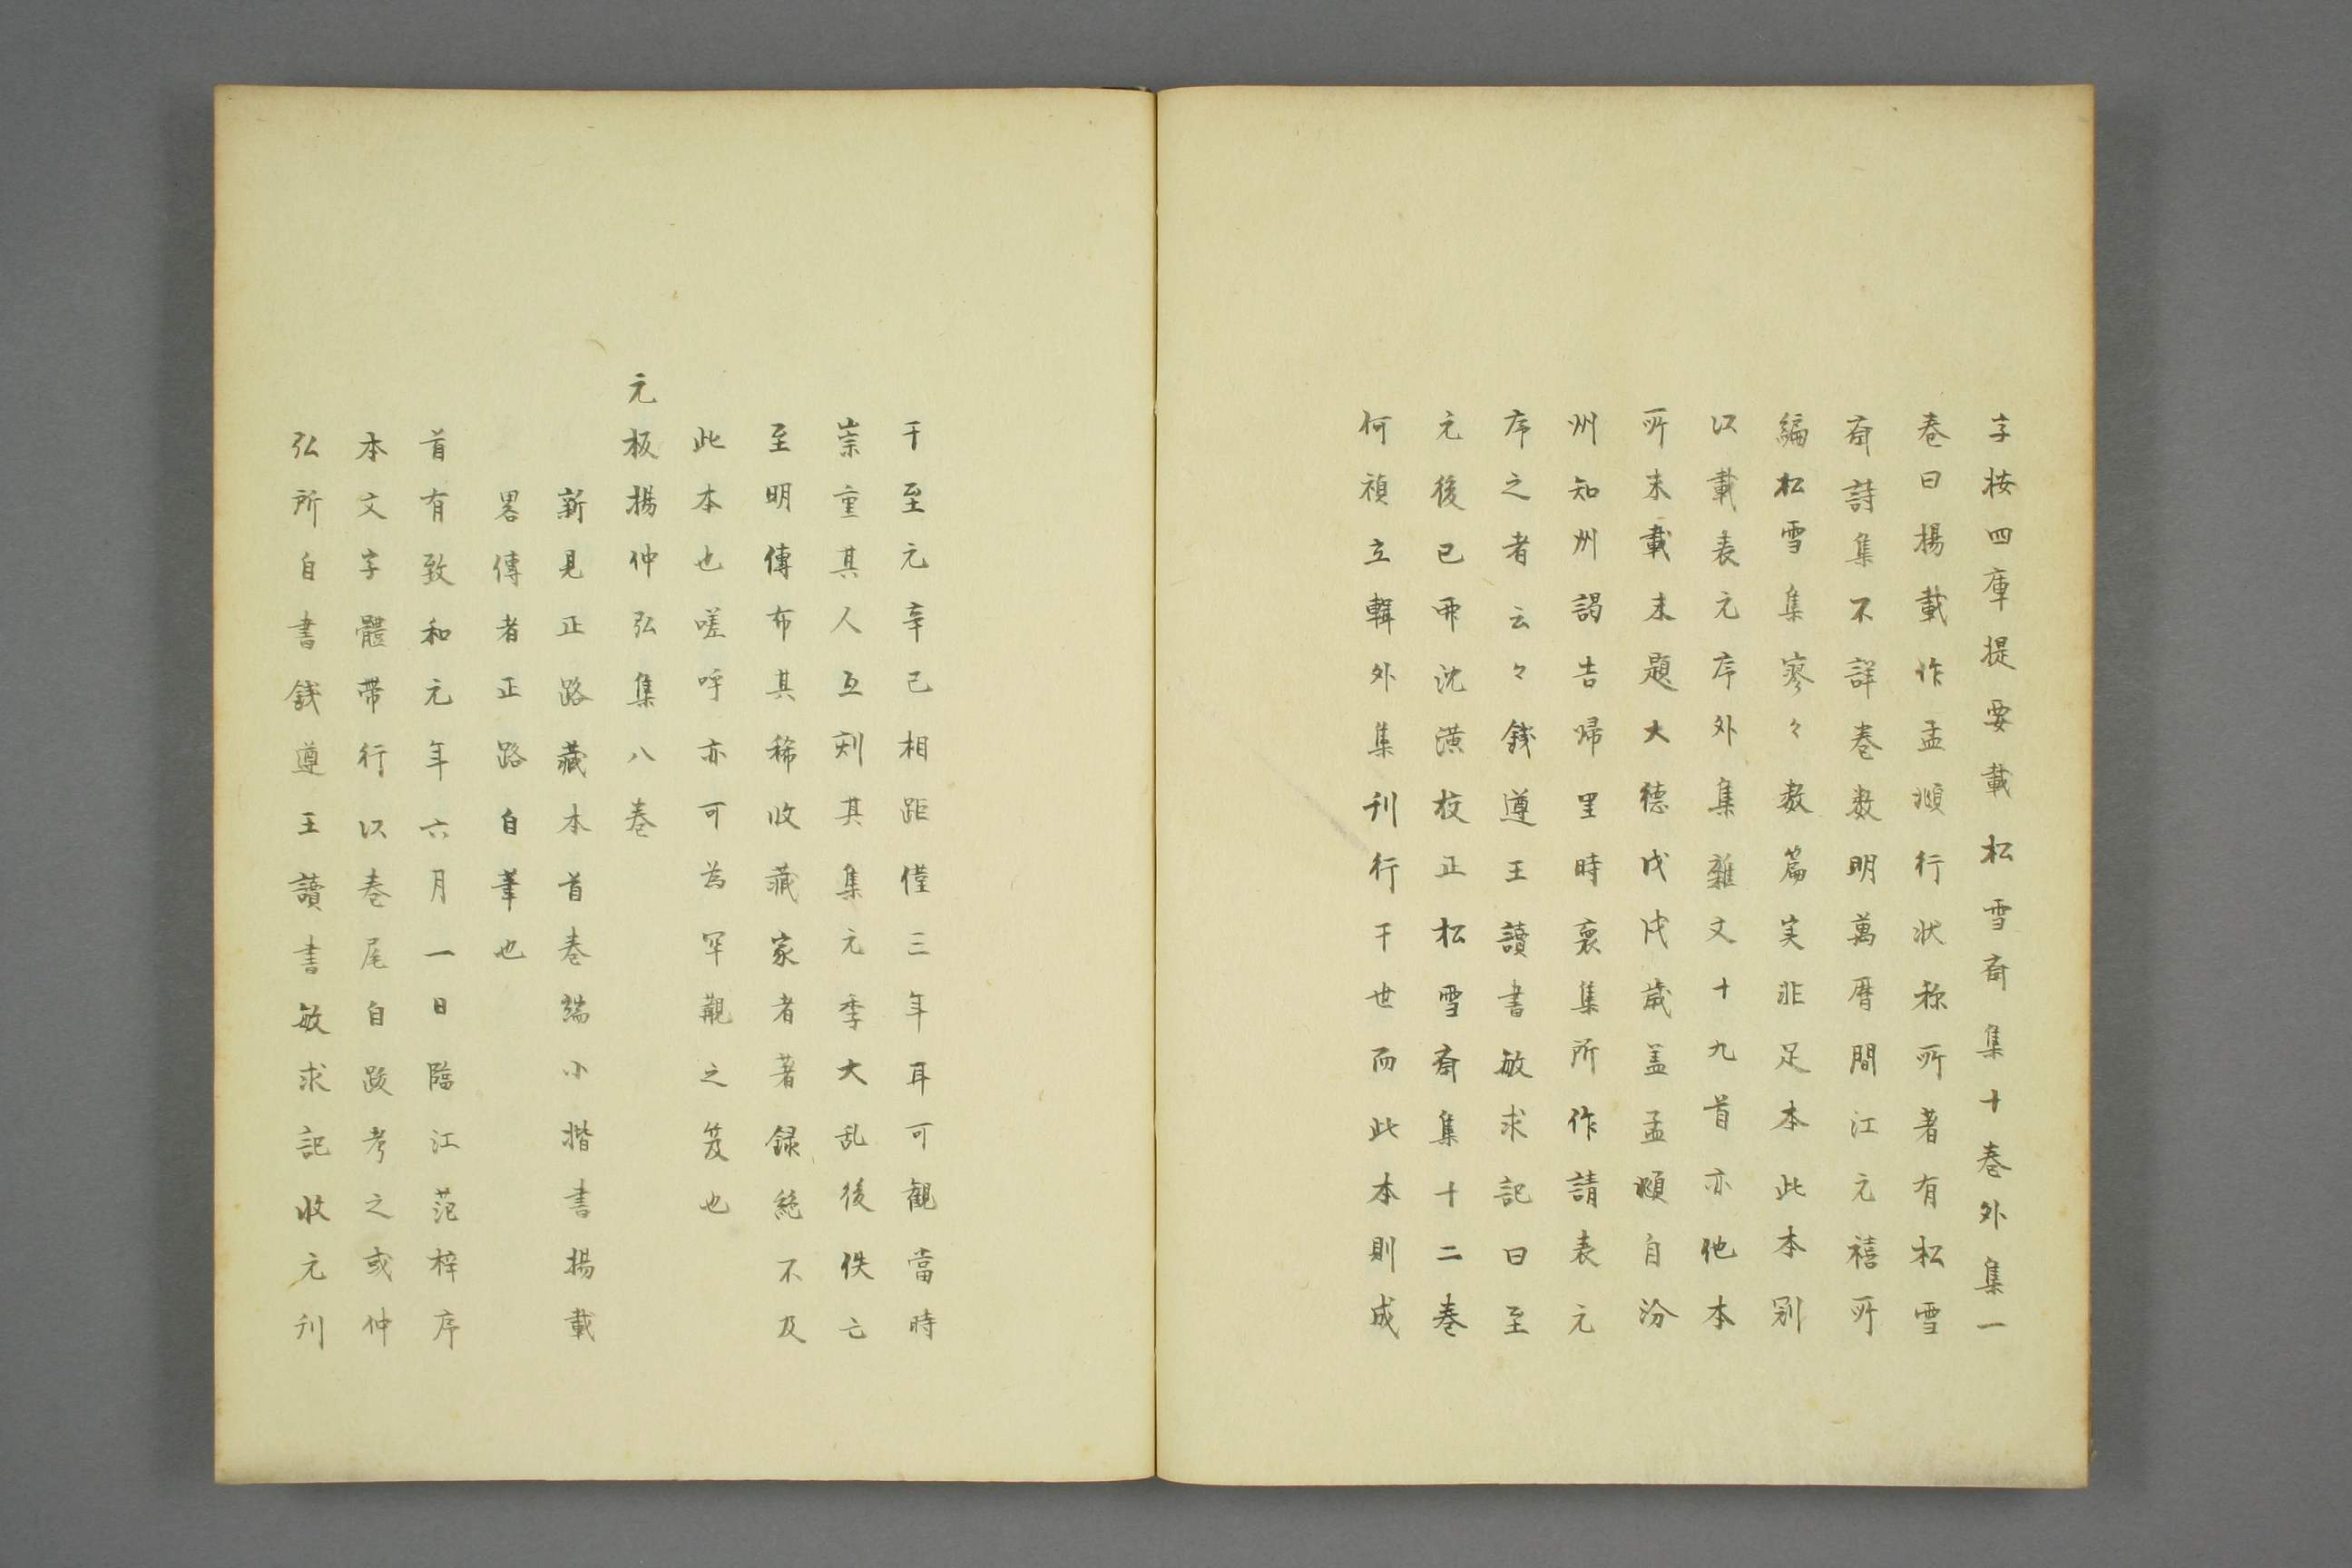 字按四庫提要載松雪斎集十巻外集一
巻曰楊載作孟頫行状称所著有松雪
斎詩集不詳巻数明萬暦間江元禧所
編松雪集寥々数篇実非足本此本別
以載表元序外集雑文十九首亦他本
所未載末題大徳戊戌歳盖孟頫自汾
州知州謁告帰里時裒集所作請表元
序之者云々銭遵王讀書敏求記曰至
元後己卯沈潢校正松雪斎集十二巻
何禎立輯外集刊行于世而此本則成
于至元辛已相距僅三年耳可観當時
崇重其人亟刻其集元季大乱後佚亡
至明傳布其稀收蔵家者著録絶不及
此本也嗟呼亦可為罕覯之笈也
元板楊仲弘集八巻
新見正路蔵本首巻端小揩書楊載
畧傳者正路自筆也
首有致和元年六月一日臨江范梓序
本文字體帯行以巻尾自跋考之或仲
弘所自書銭遵王讀書敏求記收元刊